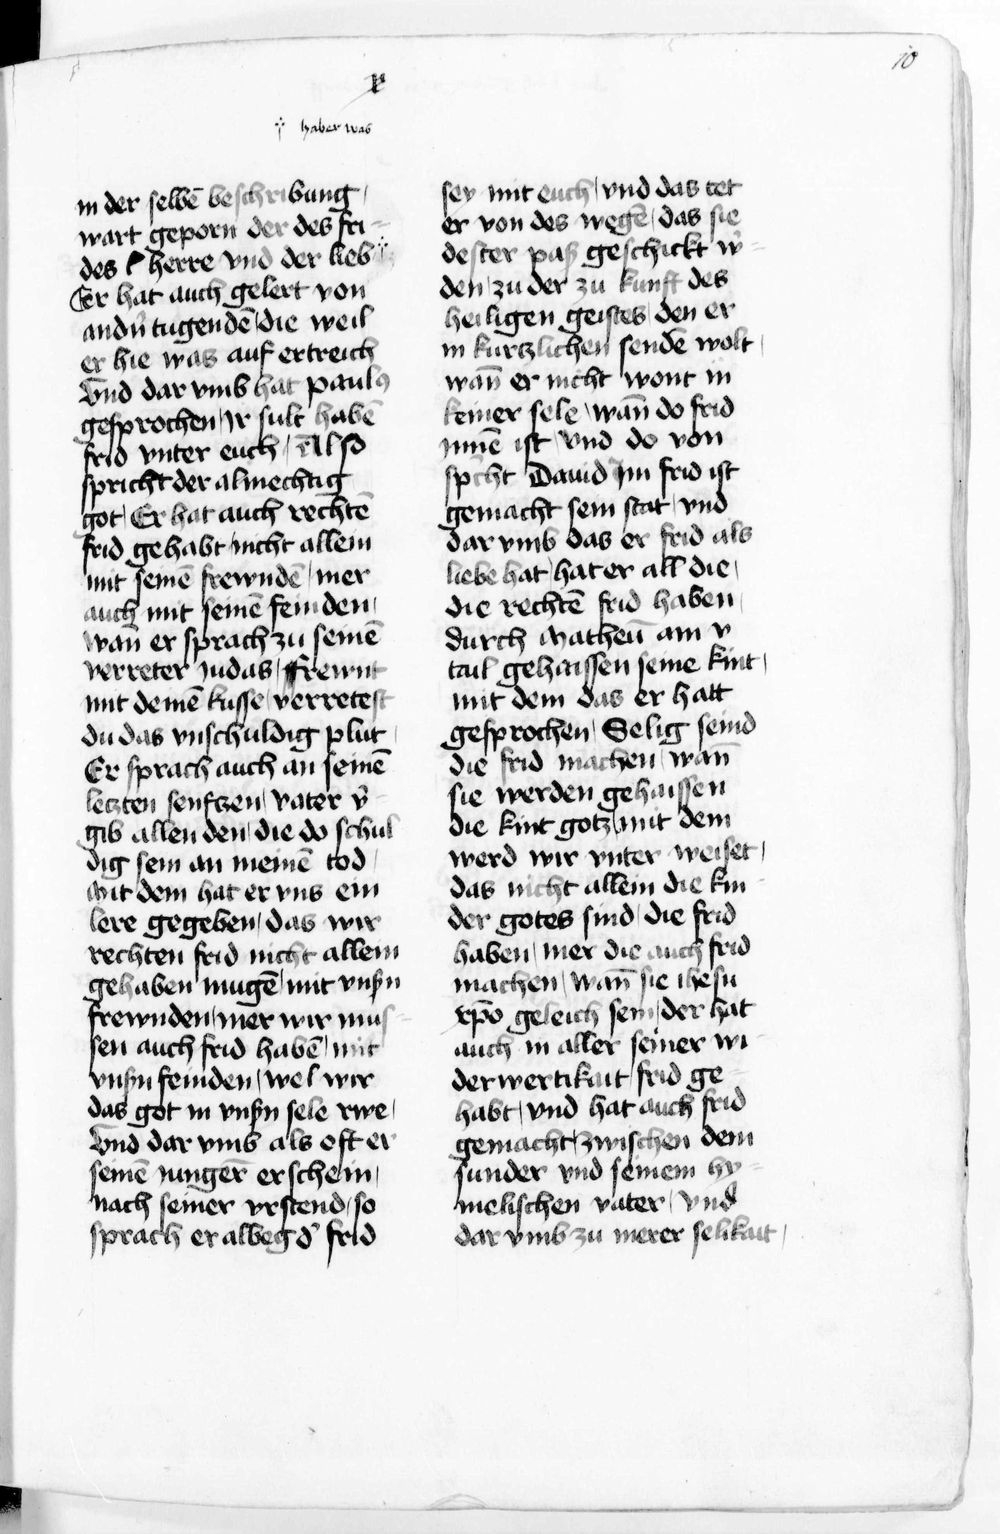 10
x
† haber was
in der selbē beschribung /
wart geporn der des fri-
des l herre vnd der lieb †
Er hat auch gelert von
andn̄ tugendē / die weil
er hie was auf ertreich
Vnd dar vmb hat paulꝰ
gesprochen / Ir sult habē
frid vnter euch / Also
spricht der almechtig
got / Er hat auch rechtē
frid gehabt / nicht allein
mit seinē frewndē / mer
auch mit seinē feinden /
wañ er sprach zu seinē
verreter iudas / frewnt
mit deinē kusse / verretest
du das vnschuldig plut /
Er sprach auch an seinē
letzten seuftzen / vater v̓-
gib allen den / die do schul
dig sein an meinē tod /
Mit dem hat er vns ein
lere gegeben / das wir
rechten frid nicht allein
gehaben mugē / mit vnsn̄
frewnden / mer wir mus-
sen auch frid habē / mit
vnsn̄ feinden / wel wir
das got in vnsn̄ sele rwe /
Vnd dar vmb als oft er
seinē iungern̄ erschein /
nach seiner vrstend / so
sprach er albeg d̓ frid
sey mit euch / vnd das tet
er von des wegē / das sie
dester paß geschickt w̓-
den / zu der zu kunft des
heiligen geistes / den er
in kurtzlichen sendē wolt /
wañ er nicht wont in
keiner sele / wañ do frid
innē ist / Vnd do von
sp̓cht Dauid Im frid ist
gemacht sein stat / vnd
dar vmb das er frid als
liebe hat / hat er all die /
die rechtē frid haben /
durch Matheū am v
tail gehaissen seine kint /
mit dem das er hatt
gesprochen / Selig seind
die frid machen / wañ
sie werden gehaissen
die kint gotz / mit dem
werd wir vnter weiset /
das nicht allein die kin-
der gotes sind / die frid
haben / mer die auch frid
machen / wañ sie ihesu
xp̄o geleich sein / der hat
auch in aller seiner wi-
derwertikait / frid ge-
habt / vnd hat auch frid
gemacht / zwischen dem
sunder vnd seinem hy-
melischen vater / Vnd
dar vmb zu merer selikait /